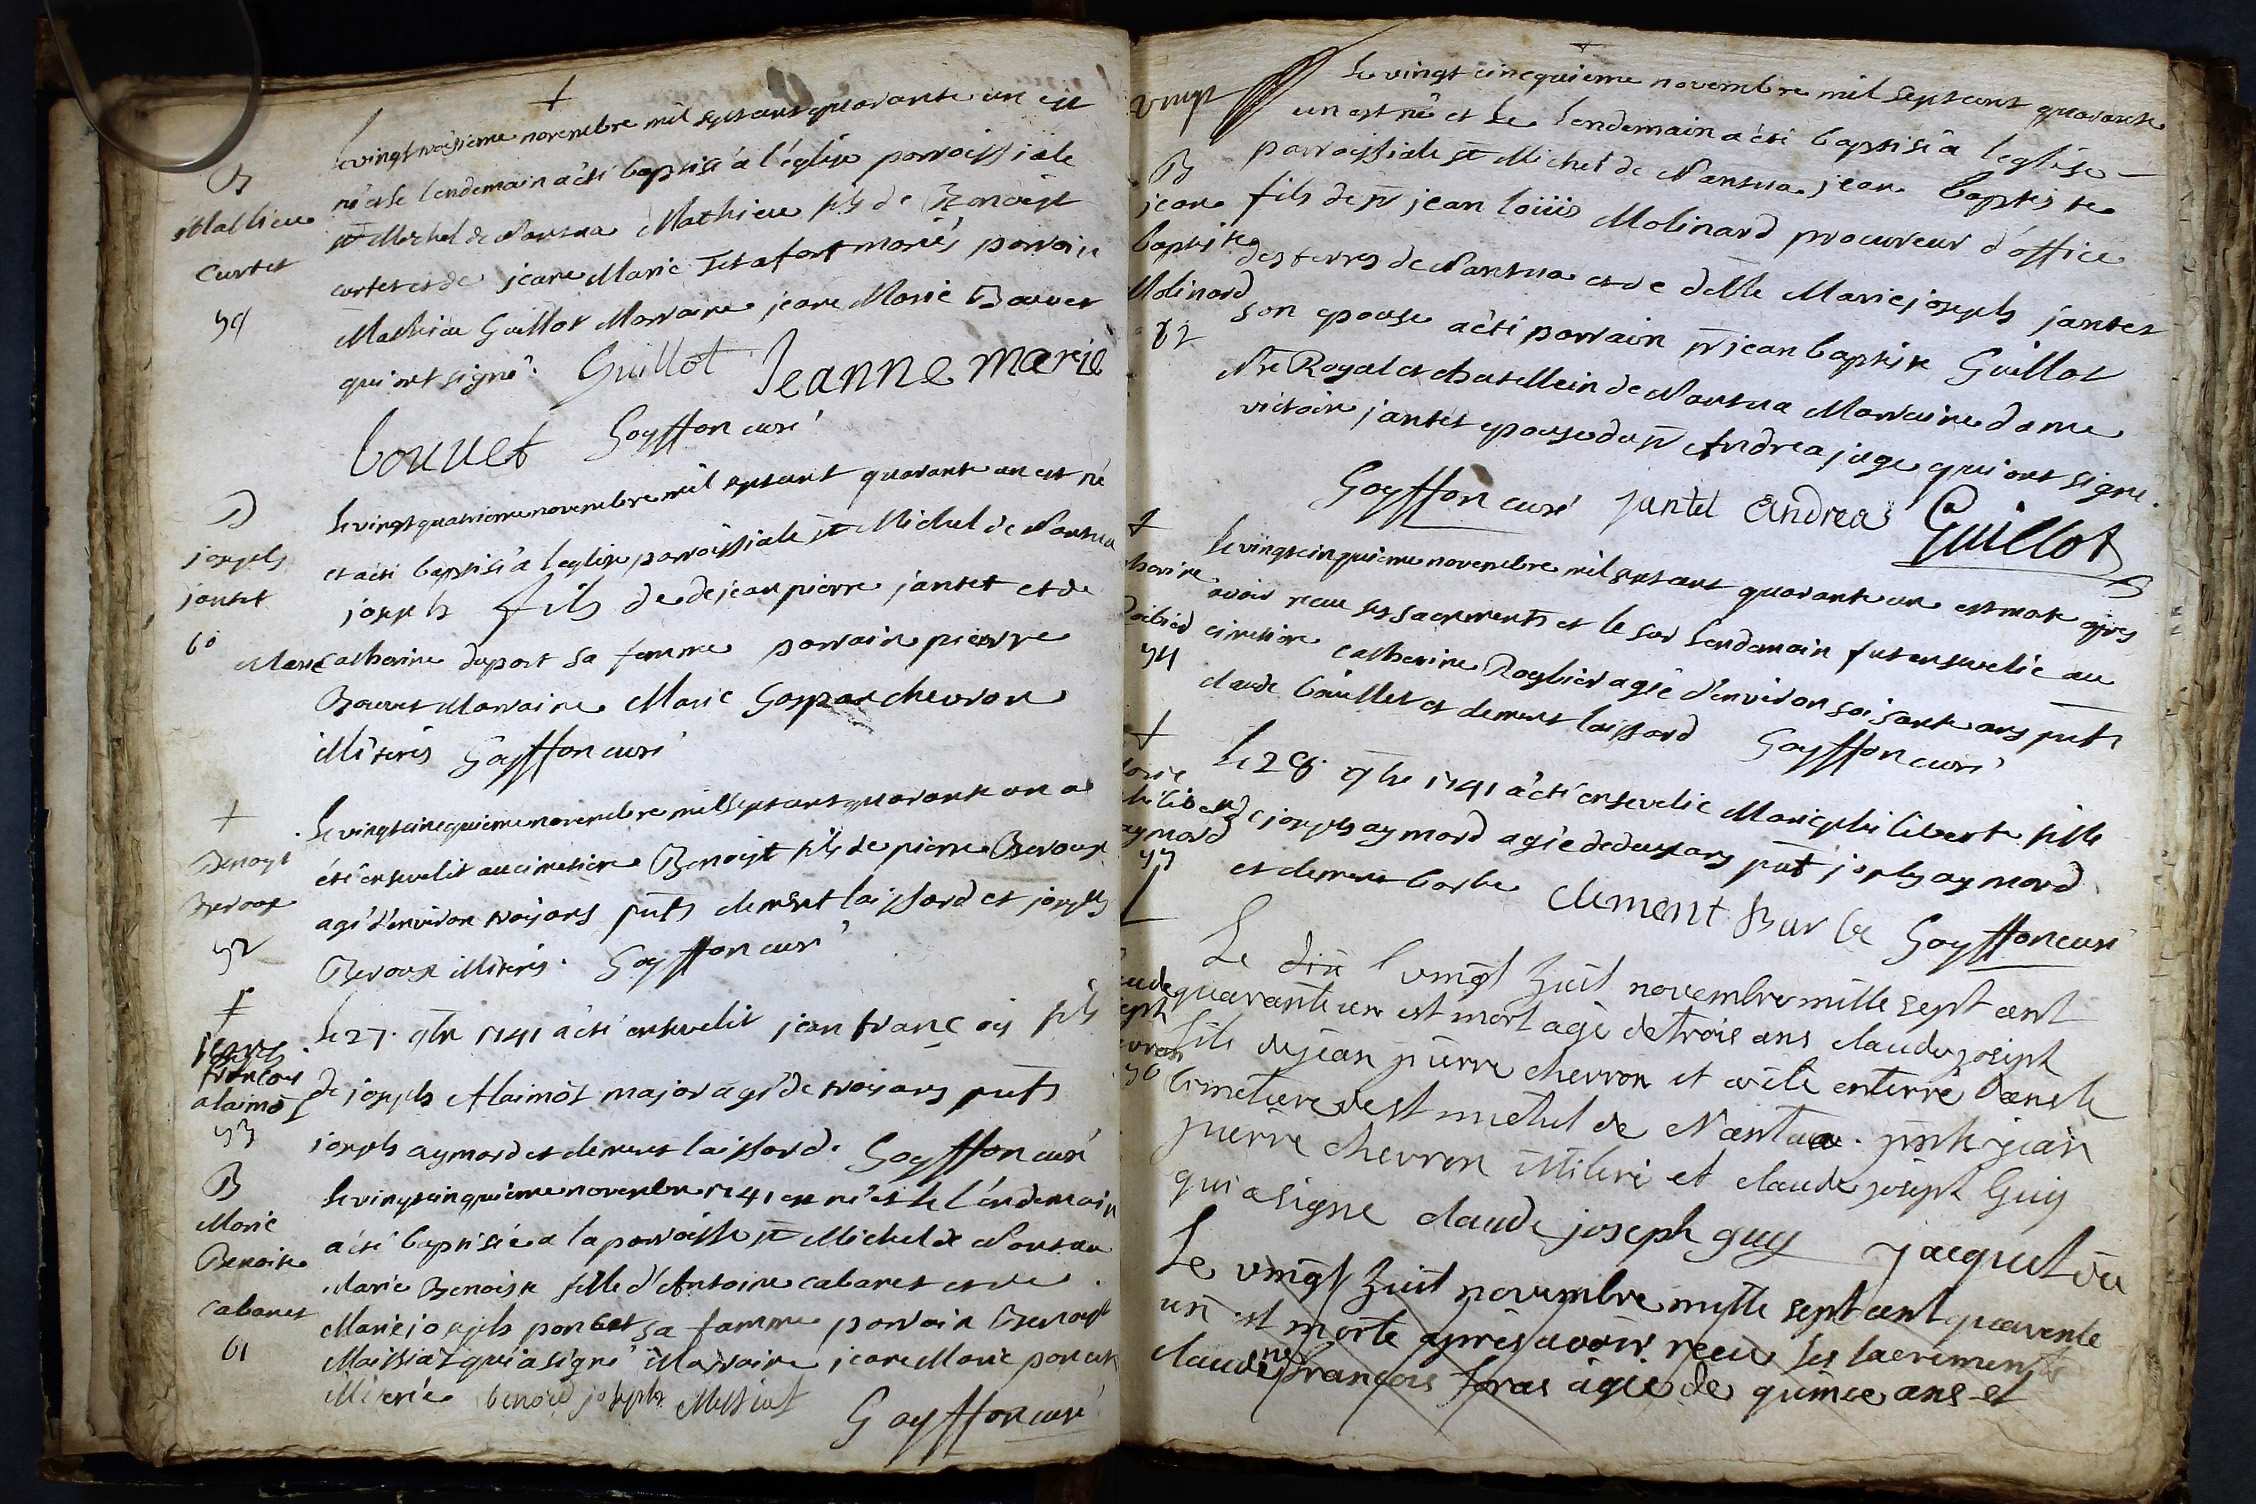 B
Mathieu
Curtet
59
Le vingt troisieme novembre mil sept cent quarante un est
né et le lendemain a été baptisé a l'église parroissiale
st Michel de Nantua Mathieu fils de Benoist
curtet et de jeane Marie mariés parrain
Mathieu Guillot Marraine jeane Marie Bouvet
qui ont signé. Guillot Jeanne marie
bouuet Goyffon curé
B
joseph
jantet
60
Le vingt quatrieme novembre mil sept cent quarante un est né
et a été baptisé a l'eglise parroissiale st Michel de Nantua
joseph fils de de jean pierre jantet et de
Marie Catherine duport sa femme parrain pierre
Bouvet Marraine Marie Gaspar chevron
illiterés Goyffon curé
+
Benoyt
Beroux
52
Le vingt cinequieme novembre mil sept cent quarante un a
été ensevelit au cimetiere Benoyt fils de pierre Beroux
agé d'environ trois ans pnts clement laissard et joseph
Beroux illiterés. Goyffon curé
+
jean
francois
alaimo
53
Le 27. 9bre 1741 a été ensevelit jean françois fils
de joseph Alaimot major agé de trois ans pnts
joseph aymard et clement laissard. Goyffon curé
B
Marie
Benoite
Cabanet
61
Le vingt cinquieme novembre 1741 est né et le l'endemain
a été baptisée a la parroisse st Michel de Nantua
Marie Benoiste fille d'Antoine cabanet et de
Marie joseph poncet sa famme parrain Benoyt
Maissiat qui a signé Marraine jeane Marie poncet
illiterée benoid joseph Messiat
Goyffon curé
vingt
B
jean
baptiste
Molinard
62
Le vingt cinequieme novembre mil sept cent quarante
un est né et le lendemain a été baptisé a l'eglise
parroissiale st Michel de Nantua jean baptiste
fils de sr jean loüis Molinard procureur d'office
des terres de Nantua et de delle Marie joseph jantet
son epouse a été parrain sr jean baptiste Guillot
Nre Royal et chatellain de Nantua Marraine dame
victoire jantet epouse du sr Andrea juge qui ont signé.
Goyffon curé jantet Andrea Guillot
+
54
Le vingt cinquieme novembre mil sept cent quarante un est morte apres
avoir recu ses sacrements et le lendemain fut ensevelie au
cimetiere catherine Roybier agée d'environ soisante ans pnts
claude baüillet et clement laissard Goyffon curé
+
aymard
55
Le 28. 9bre 1741 a été ensevelie Marie philiberte fille
de joseph aymard agée de deux ans pnt joseph aymard
et clement barbe clement Bar be Goyffon curé
56
Le dix vingt huit novembre mille sept cent
quarante un est mort agé de trois ans claude joseph
fils de jean pierre chevron et a été enterré dans le
cimetiere de st michel de Nantua. jean
pierre chevron illiteré et claude joseph Guy
qui a signe claude joseph guy jacquet
Le vingt huit novembre mille sept cent quarente
un est morte apres avoir receu ses sacrements
claudine françois agée de quince ans et